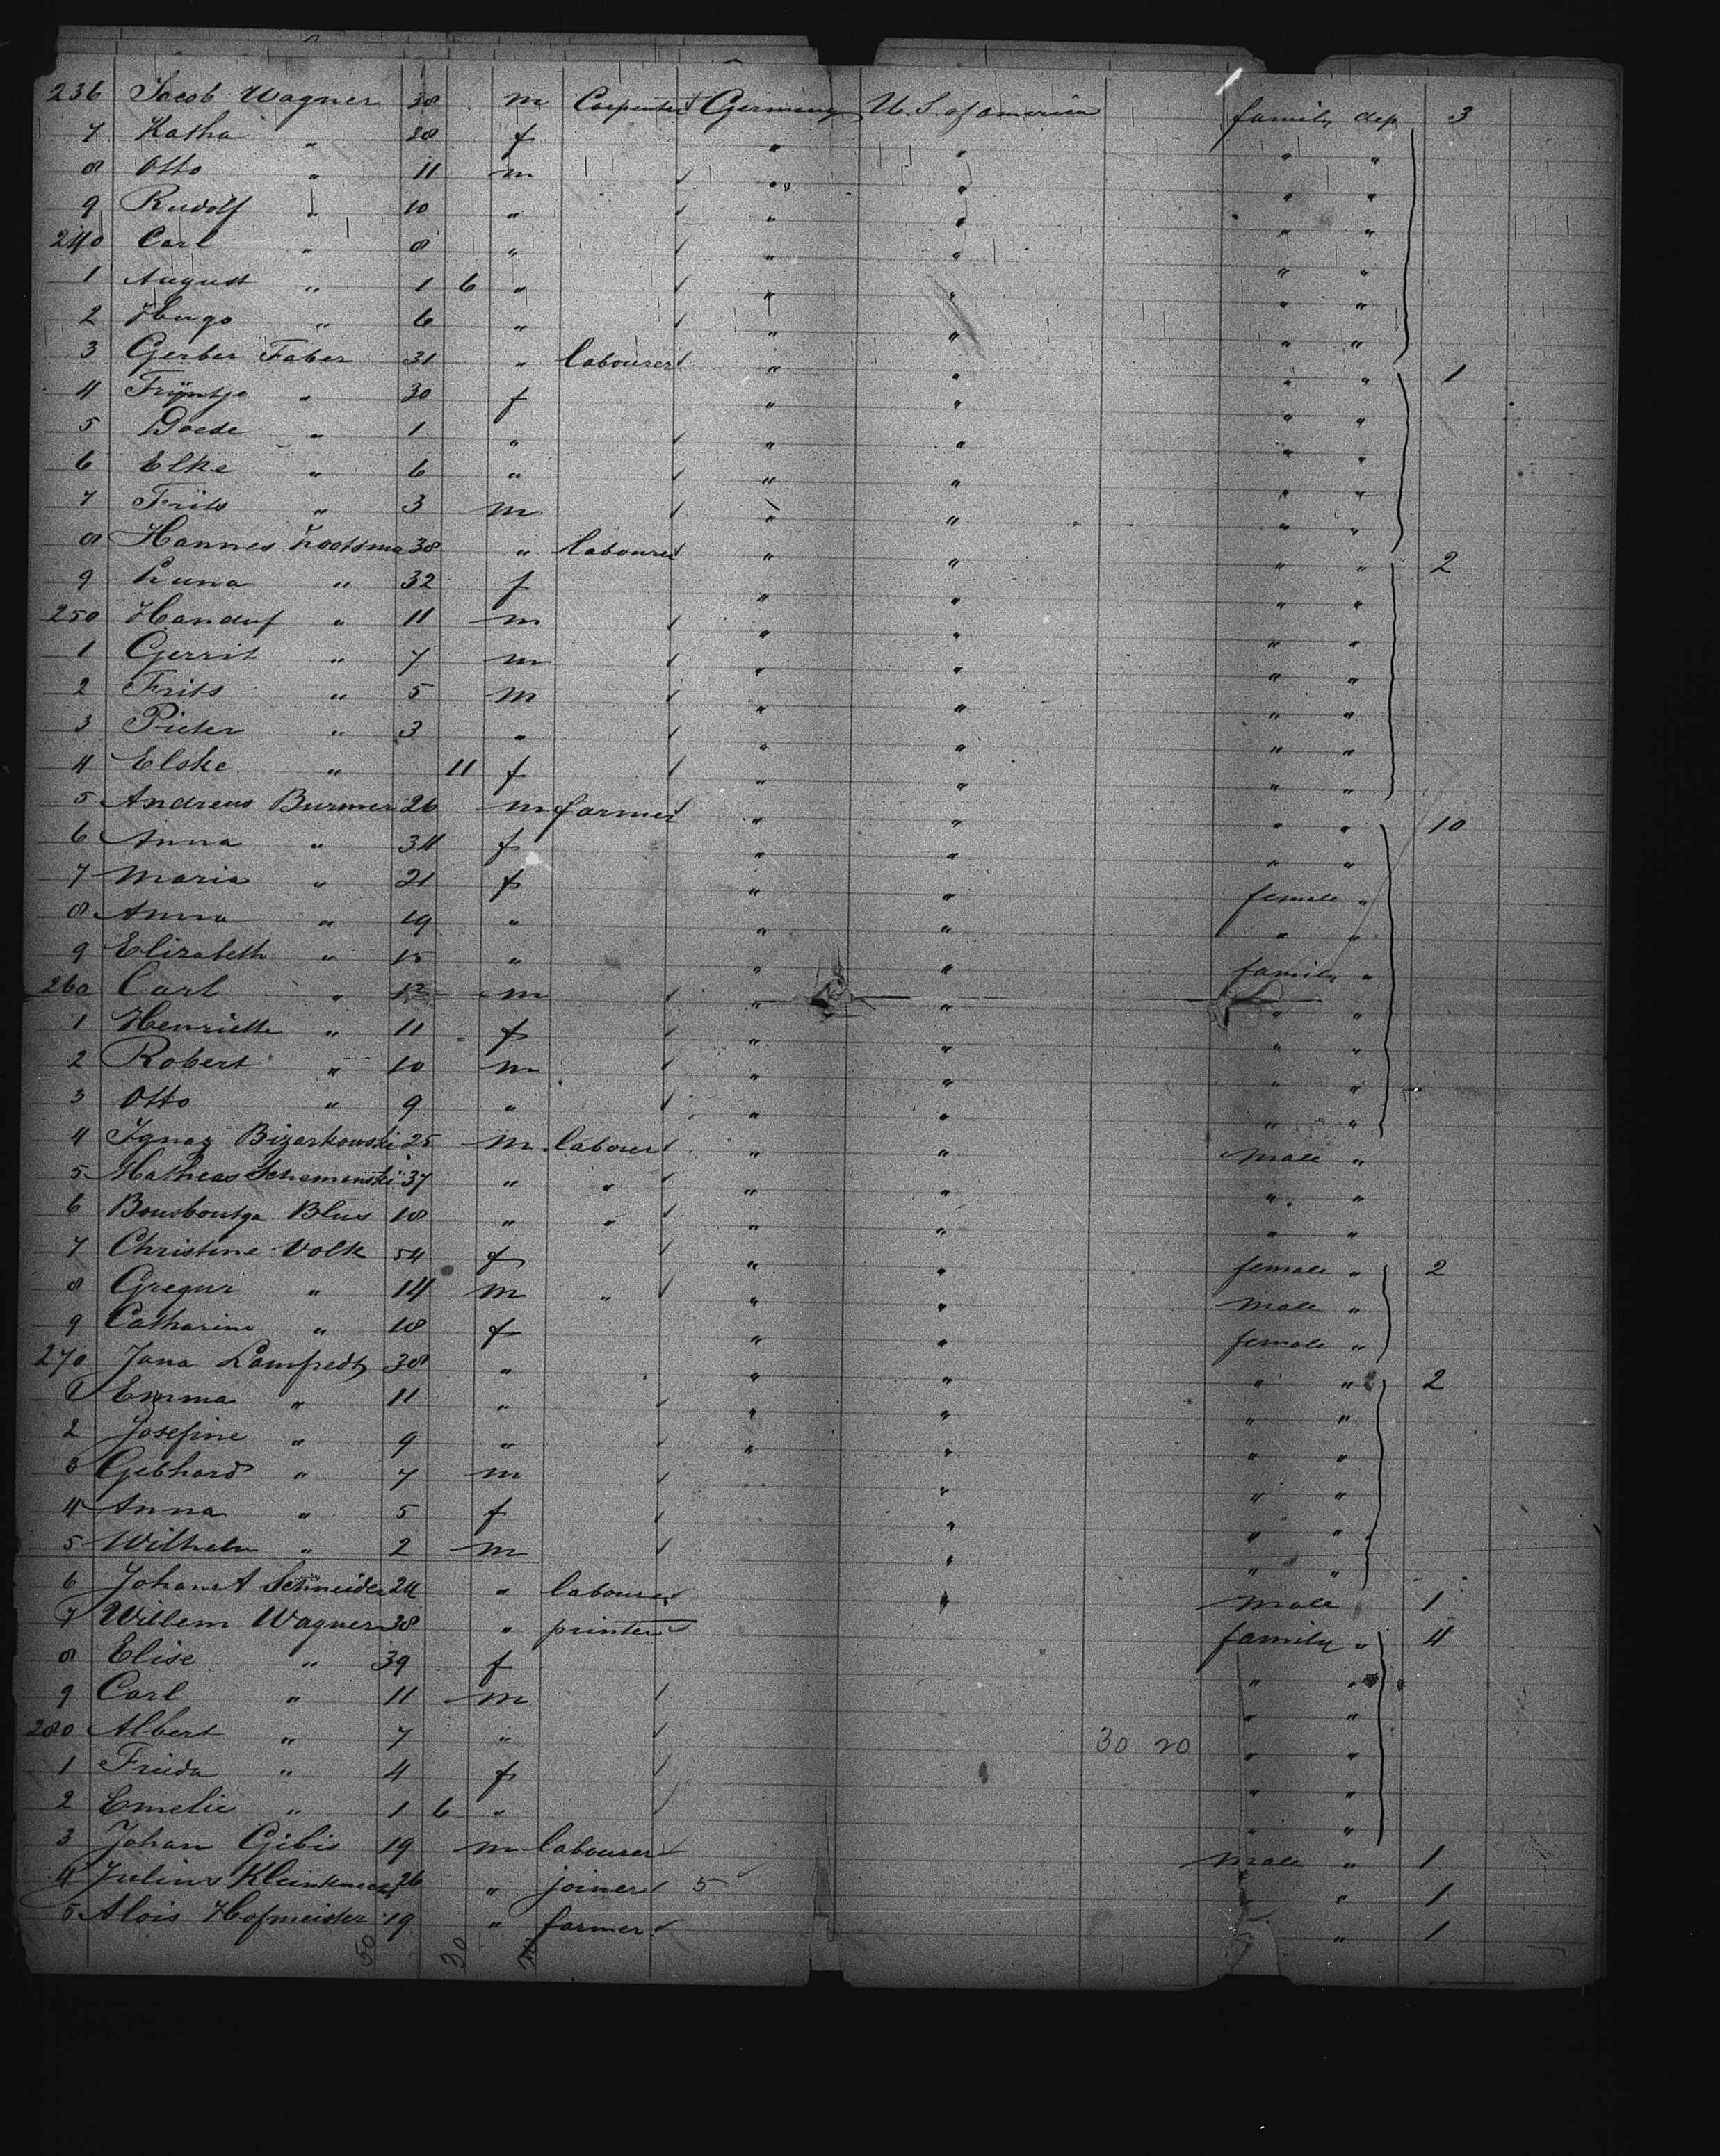 236 Jacob Wagner 38 m Carpenter Germany U. S. of america family dep 3
7 Katha " 28 f " " " "
8 Otto " 11 m " " " "
9 Rudolf " 10 " " " " "
240 Carl " 8 " " " " "
1 August " 1 6 " " " " "
2 Hugo " 6 " " " " "
3 Gerber Faber 31 " labourer " " " " 1
4 Trijntje " 30 f " " " "
5 Doede " 1 " " " " "
6 Elke " 6 " " " " "
7 Frits " 3 m " " " "
8 Hannes Lootsma 38 " labourer " " " " 2
9 Luna " 32 f " " " "
250 " 11 m " " " "
1 Gerrit " 7 m " " " "
2 Frits " 5 m " " " "
3 Pieter " 3 " " " " "
4 Elske " 11 f " " " "
5 Andreas Burmer 26 m farmer " " " " 10
6 Anna " 34 f " " " "
7 Maria " 21 f " " female "
8 Anna " 19 " " " " "
9 Elizabeth " 15 " " " family "
260 Carl " 12 m " " " "
1 Henriette " 11 f " " " "
2 Robert " 10 m " " " "
3 Otto " 9 " " " " "
4 Ignaz Bizarkowski 25 m labourer " " male "
5 Matheas Schemenski 37 " " " " " "
6 Blus 18 " " " " " "
7 Christine Volk 54 f " " female " 2
8 Gregur " 14 m " " " male "
9 Catharine " 18 f " " female "
270 Jana Lamfredt 38 " " " " " 2
1 Emma " 11 " " " " "
2 Josefine " 9 " " " " "
3 Gebhard " 7 m " " "
4 Anna " 5 f " " "
5 Wilhelm " 2 m " " "
6 Johan A Schneider 24 " labourer " male 1
7 Willem Wagner 38 " printer family " 4
8 Elise " 39 f " "
9 Carl " 11 m " "
280 Albert " 7 " 30 20 " "
1 Frieda " 4 f " "
2 Emelie " 1 6 " " "
3 Johan Gibis 19 m labourer male " 1
4 Julius Kleinknecht 26 " joiner 5 " 1
5 Alois Hofmeister 19 " farmer " 1
50 30 20